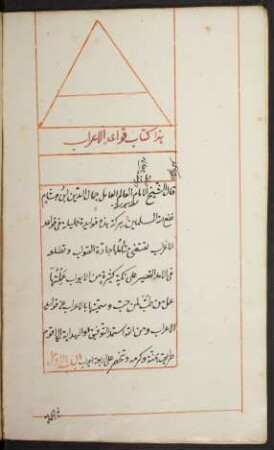 هذا كتاب قواعد الاعراب
قال الشيخ الامام العالم العامل جمال الدين ابن هشام
نفع الله المسلمين ببركته هذه فوائد جليلة في قواعد
الاعراب تقتفي بمتأملها جادة الصواب وتطلعه
في الامد القصير على نكت كثيرة من الابواب عملتها
عمل من طب لمن حب وسميتها بالاعراب عن قواعد
الاعراب ومن الله استمد التوفيق والهداية الى اقوم
طريق بمنه وكرمه وتنحصر على اربعة ابواب الباب الاول